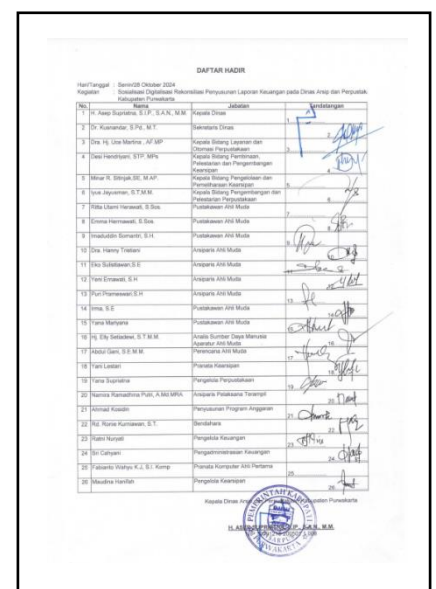 DAFTAR HADIR
Hari/Tanggal : Senin/28 Oktober 2024
Kegiatan : Sosialisasi Digitalisasi Rekonsiliasi Penyusunan Laporan Keuangan pada Dinas Arsip dan Perpustak
Kabupaten Purwakarta
No. Nama Jabatan Tandatangan
1 H. Asep Supriatna, S.I.P., S.A.N., M.M Kepala Dinas 1.
2 Dr. Kusnandar, S.Pd., M.T. Sekretaris Dinas 2.
3 Dra. Hj. Use Martina., AF.MP Kepala Bidang Layanan dan
Otomasi Perpustakaan 3.
4 Desi Hendriyani, STP. MPs Kepala Bidang Pembinaan,
Pelestarian dan Pengembangan
Kearsipan 4.
5 Minar R. Sitinjak,SE, M.AP. Kepala Bidang Pengelolaan dan
Pemeliharaan Kearsipan 5.
6 Iyus Jayusman, S.T.M.M. Kepala Bidang Pengembangan dan
Pelestarian Perpustakaan 6.
7 Ritta Utami Herawati, S.Sos. Pustakawan Ahli Muda 7.
8 Emma Hermawati, S.Sos. Pustakawan Ahli Muda 8.
9 Imaduddin Somantri, S.H. Pustakawan Ahli Muda 9.
10 Dra. Hanny Tristiani Arsiparis Ahli Muda 10.
11 Eko Sulistiawan,S.E Arsiparis Ahli Muda 11.
12 Yeni Ernawati, S.H Arsiparis Ahli Muda 12.
13 Puri Prameswari,S.H Arsiparis Ahli Muda 13.
14 Irma, S.E Pustakawan Ahli Muda 14.
15 Yana Maryana Pustakawan Ahli Muda
16 Hj. Elly Setiadewi, S.T.M.M. Analis Sumber Daya Manusia
Aparatur Ahli Muda 16.
17 Abdul Gani, S.E.M.M. Perencana Ahli Muda 17.
18 Yani Lestari Pranata Kearsipan 18.
19 Yana Supriatna Pengelola Perpustakaan 19.
20 Namira Ramadhina Putri, A.Md.MRA Arsiparis Pelaksana Terampil 20.
21 Ahmad Kosidin Penyusunan Program Anggaran 21.
22 Rd. Ronie Kurniawan, S.T. Bendahara 22.
23 Ratni Nuryati Pengelola Keuangan 23.
24 Sri Cahyani Pengadministrasian Keuangan 24.
25 Febianto Wahyu K.J, S.I. Komp Pranata Komputer Ahli Pertama 25.
26 Maudina Hanifah Pengelola Kearsipan 26.
Kepala Dinas Arsip Kabupaten Purwakarta
H. ASEP SUPRIATNA, S.I.P., S.A.N., M.M.